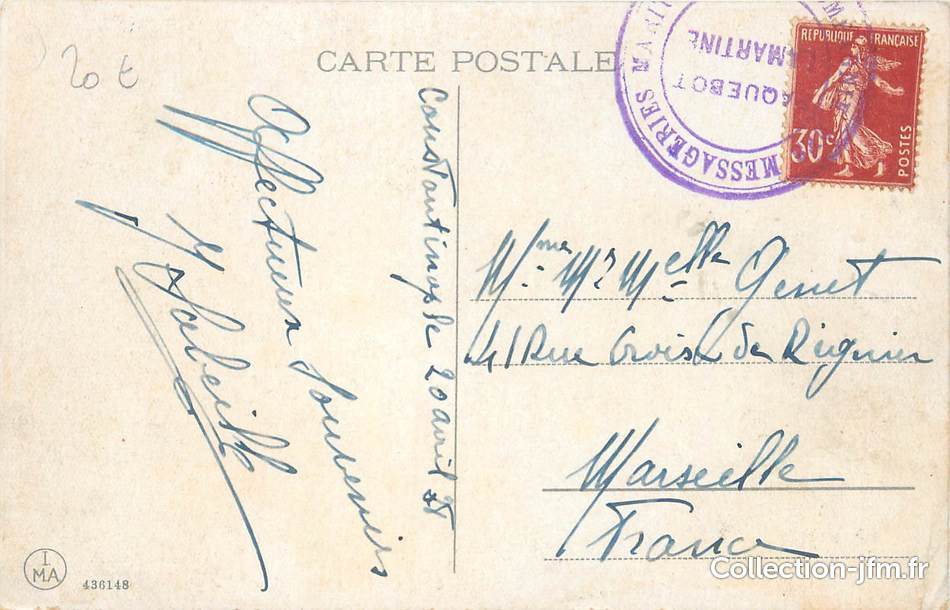 20 €
CARTE POSTALE
MESSAGERIES MARITIMES
PAQUEBOT
LAMARTINE
REPUBLIQUE FRANÇAISE
30c
POSTES
Constantinople 20 avril
Affectueux Souvenirs
Mme Mr Melle Genet
41 Rue Croix de Régnier
Marseille
France
I
MA
436148
Collection-jfm.fr